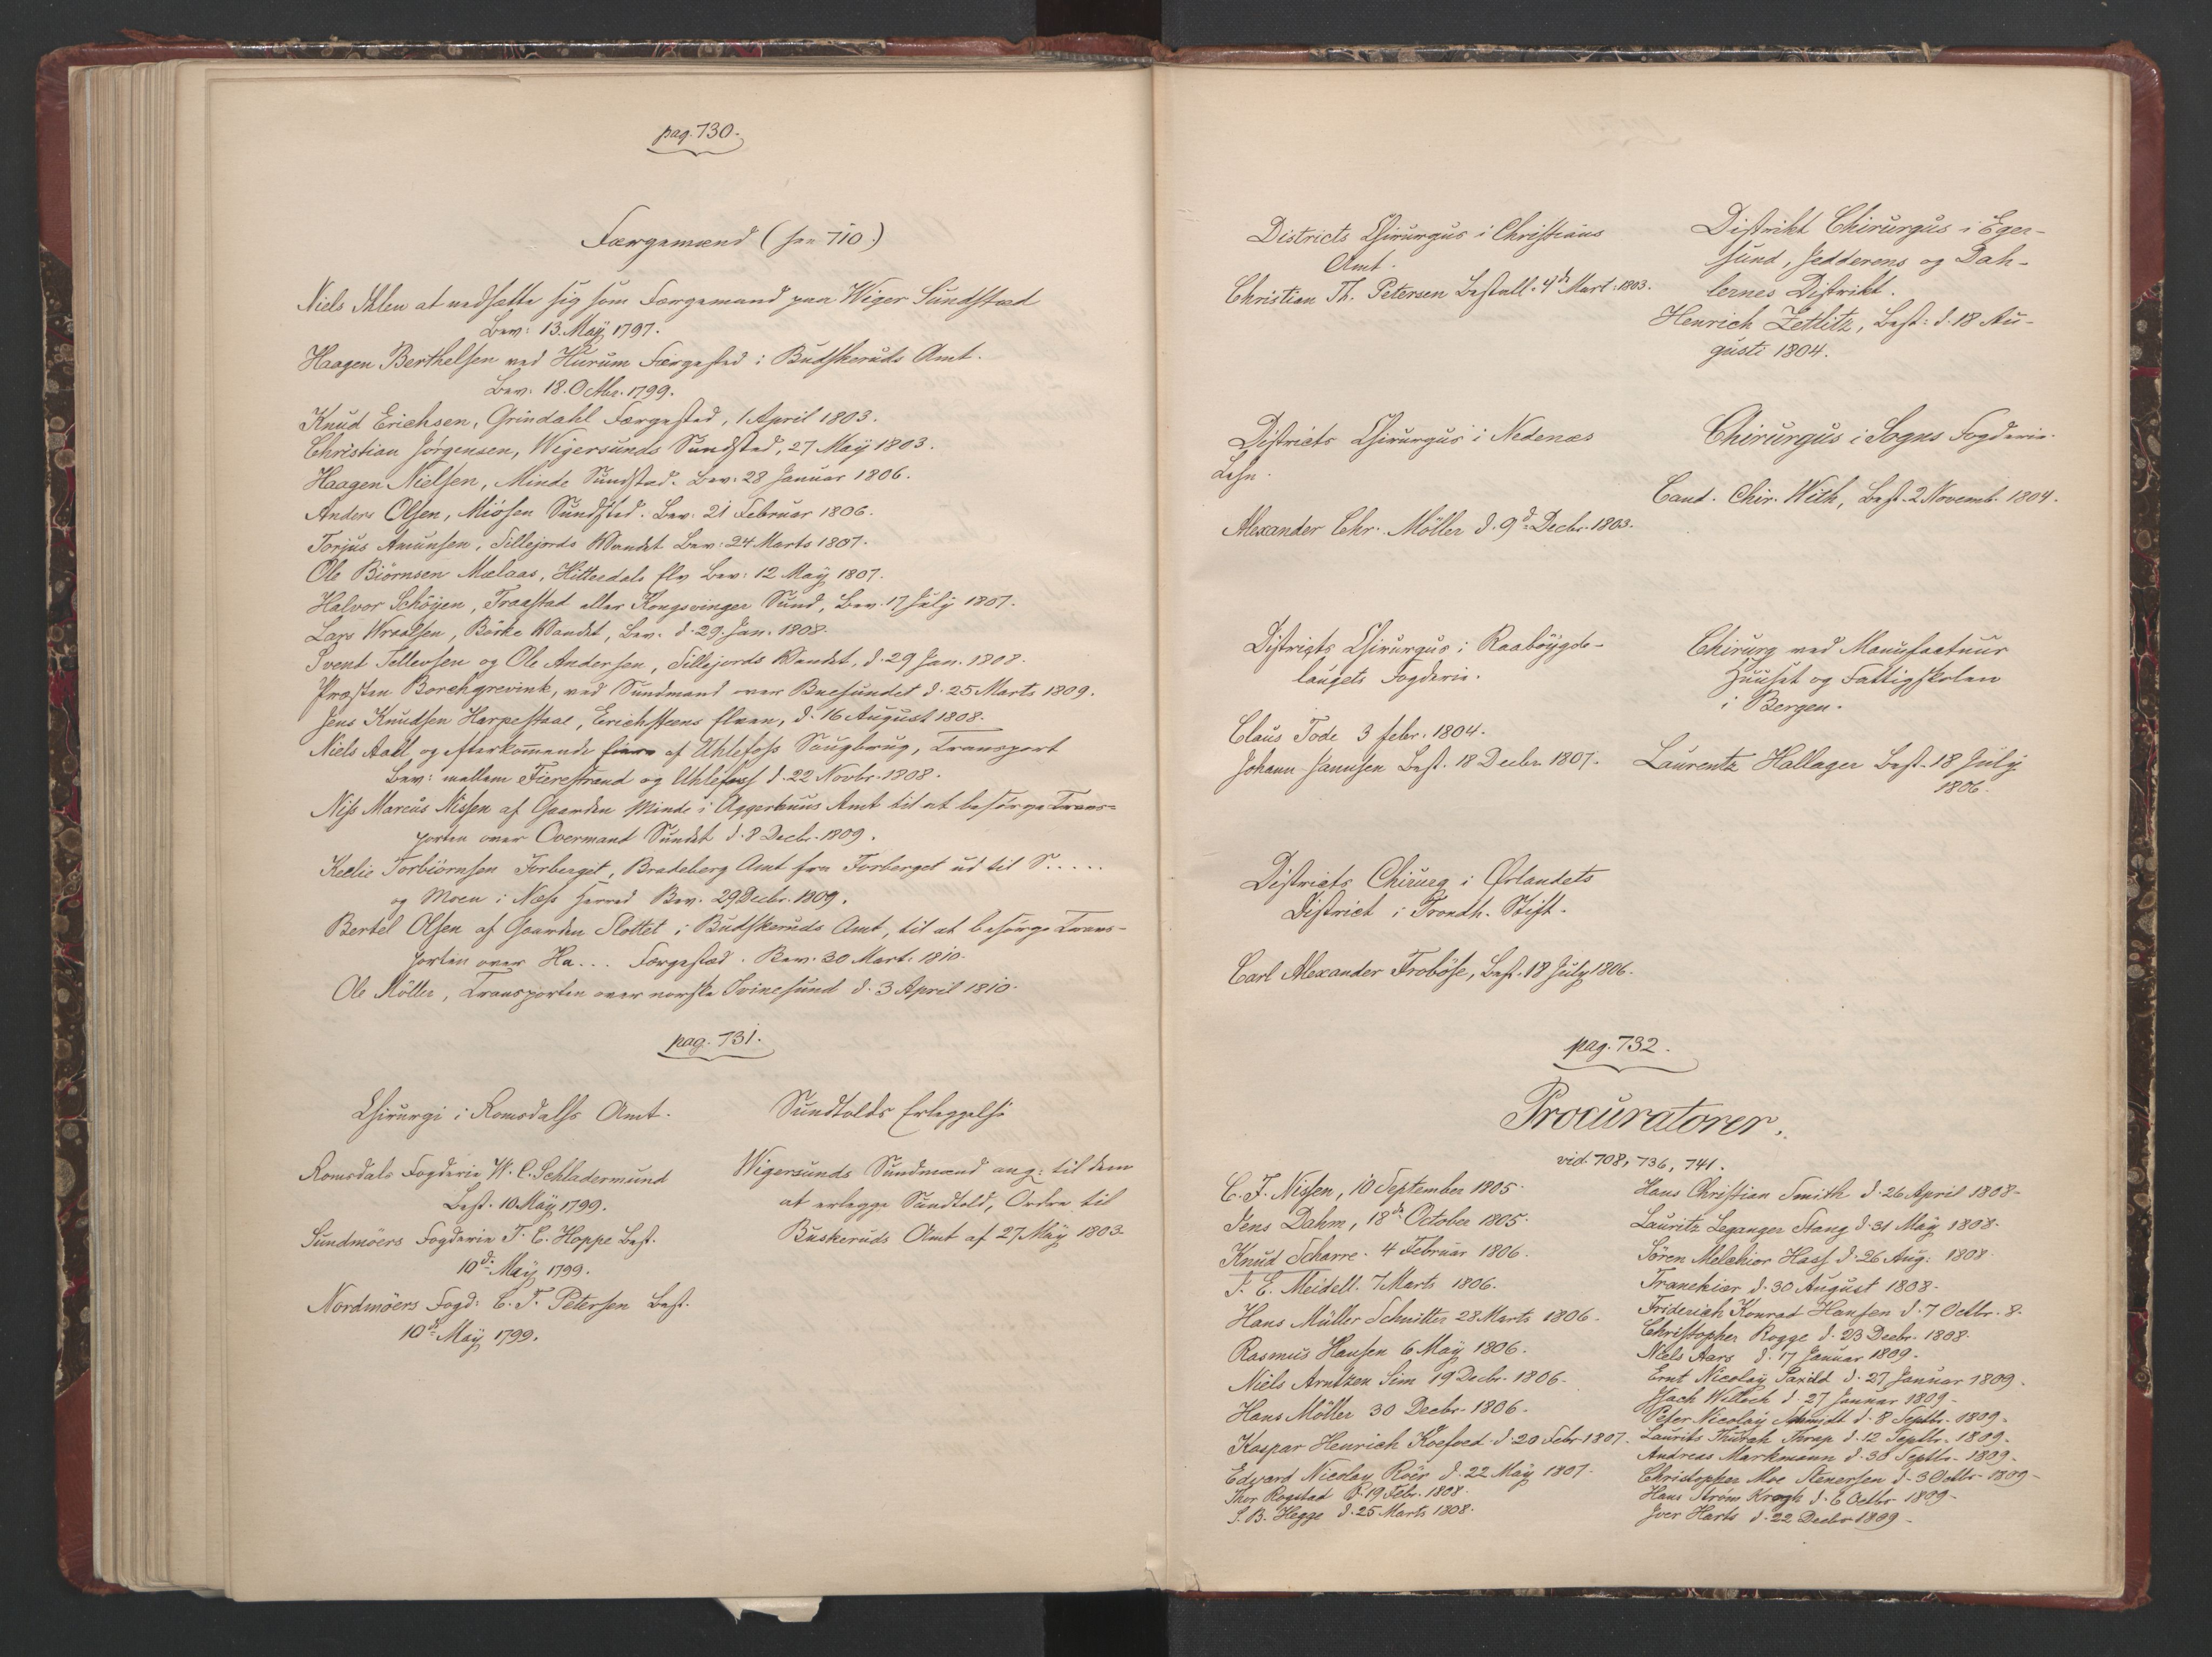 pag. 730.
Færgemænd (see 710.)
Niels Ihlen at nedsætte sig som Færgemand paa Wiger Sundsted
Bev: 13. Maÿ 1797.
Haagen Berthelsen ved Hurum Færgested i Budskeruds Amt.
Bev. 18. Octbr. 1799.
Knud Erichsen, Grindahl Færgested, 1 April 1803.
Christian Jørgensen, Wigersunds Sundsted, 27 Maÿ 1803.
Haagen Nielsen, Minde Sundsted. Bev: 28 Januar 1806.
Anders Olsen, Miøsen Sundsted. Bev: 21 Februar 1806.
Torjus Amunsen, Tillejords Wandet Bev: 24 Marts 1807.
Ole Biörnsen Mælaas, Hitterdals Elv Bev: 12 Maÿ 1807.
Halvor Schöÿen, Traastad eller Kongsvinger Sund, Bev. 17 Julÿ 1807.
Lars Wraalsen, Börke Wandet, Bev. d. 29. Jan. 1808.
Svent Tellevsen og Ole Andersen, Tillejords Wandet, d. 29 Jan. 1808.
Præsten Borchgrevink, ved Sundmand over Buesundet d. 25 Marts 1809.
Jens Knudsen Harpestaae, Erichsteens Elven, d. 16 August 1808.
Niels Aall og efterkommende Eiere af Uhlefoss Saugbrug, Transport
Bev: mellem Fierestrand og Uhlefoss d. 22 Novbr. 1808.
Niss Marcus Nissen af Gaarden Minde i Aggerhuus Amt til at besørge Trans=
porten over Overmand Sundet d. 8 Decbr. 1809.
Keelie Torbiörnsen Forberget, Bradsberg Amt fra Forberget ud til S.....
og Moen i Næss Herred Bev. 29 Decbr. 1809.
Bertel Olsen af Gaarden Slottet i Budskeruds Amt, til at besørge Trans-
porten over Ha... Færgested. Bev. 30 Mart. 1810.
Ole Möller, Transporten over norske Svinesund d. 3 April 1810.
pag. 731.
Chirurgi i Romsdalss Amt.
Romsdals Fogderie W. C. Schladermund
Best. 10. Maÿ 1799.
Sundmöers Fogderie T. C. Hoppe Best.
10d. Maÿ 1799.
Nordmöers Fogd: C. F. Petersen Best.
10d. Maÿ 1799.
Sundtolds Erleggelse
Wigersunds Sundmænd ang: til dem
at erlegge Sundtold, Ordre til
Buskeruds Amt af 27 Maÿ 1803.
Districts Chirurgus i Christians
Amt.
Christian Th. Petersen Bestall. 4d. Mart. 1803.
Districts Chirurgus i Nedenæs
Lehn.
Alexander Chr. Möller d. 9d. Decbr. 1803.
Districts Chirurgus i Raabÿgde-
laugets Fogderie.
Claus Tode 3 febr. 1804.
Johann Jannsen Best. 18 Decbr. 1807.
Districts Chirurg i Ørlandets
District i Trondh. Stift.
Carl Alexander Froböse, Best. 18 Julÿ 1806.
Distrikt Chirurgus i Eger-
sund, Jedderens og Dah-
lernes Distrikt.
Henrich Zetlitz, Best: d. 18 Au-
gusti 1804.
Chirurgus i Sogns Fogderie.
Cand. Chir. With, Best. 2 Novemb. 1804.
Chirurg ved Manufactuur
Huuset og Fattigskolen
i Bergen.
Laurentz Hallager Best. 18 Julÿ
1806.
pag. 732.
Procuratorer.
vid. 708, 736, 741.
C. F. Nissen, 10 September 1805.
Jens Dahm, 18d. October 1805.
Knud Scharre. 4 Februar 1806.
F. E. Meidell. 7 Marts 1806.
Hans Müller Schnitter 28 Marts 1806.
Rasmus Hansen 6 Maÿ 1806.
Niels Arntzen Sim 19 Decbr. 1806.
Hans Möller 30 Decbr. 1806.
Kaspar Henrich Koefoed d. 20 Febr. 1807.
Edvard Nicolay Röer d. 22 Maÿ 1807.
Thor Rogstad d. 19 Febr. 1808.
S. B. Hegge d. 25 Marts 1808.
Hans Christian Smith d. 26 April 1808.
Lauritz Leganger Stang d. 31 Maÿ 1808.
Sören Melchior Hass d. 26 Aug. 1808.
Tranekier d. 30 August 1808.
Friderich Konrat Hansen d. 7 Octbr. 8.
Christopher Rogge d. 23 Decbr. 1808.
Niels Aars d. 17 Januar 1809.
Ernt Nicolaÿ Saxild d. 27 Januar 1809.
Willoch d. 27 Januar 1809.
Peter Nicolaÿ Schmidt d. 8 Septbr. 1809.
Laurits Thurah Thrap d. 12 Septbr. 1809.
Andreas Markmann d. 30 Septbr. 1809.
Christopher Moe Stenersen d. 3 Octbr. 1809.
Hans Ström Krogh d. 6 Octbr. 1809.
Iver Harts d. 22 Decbr 1809.